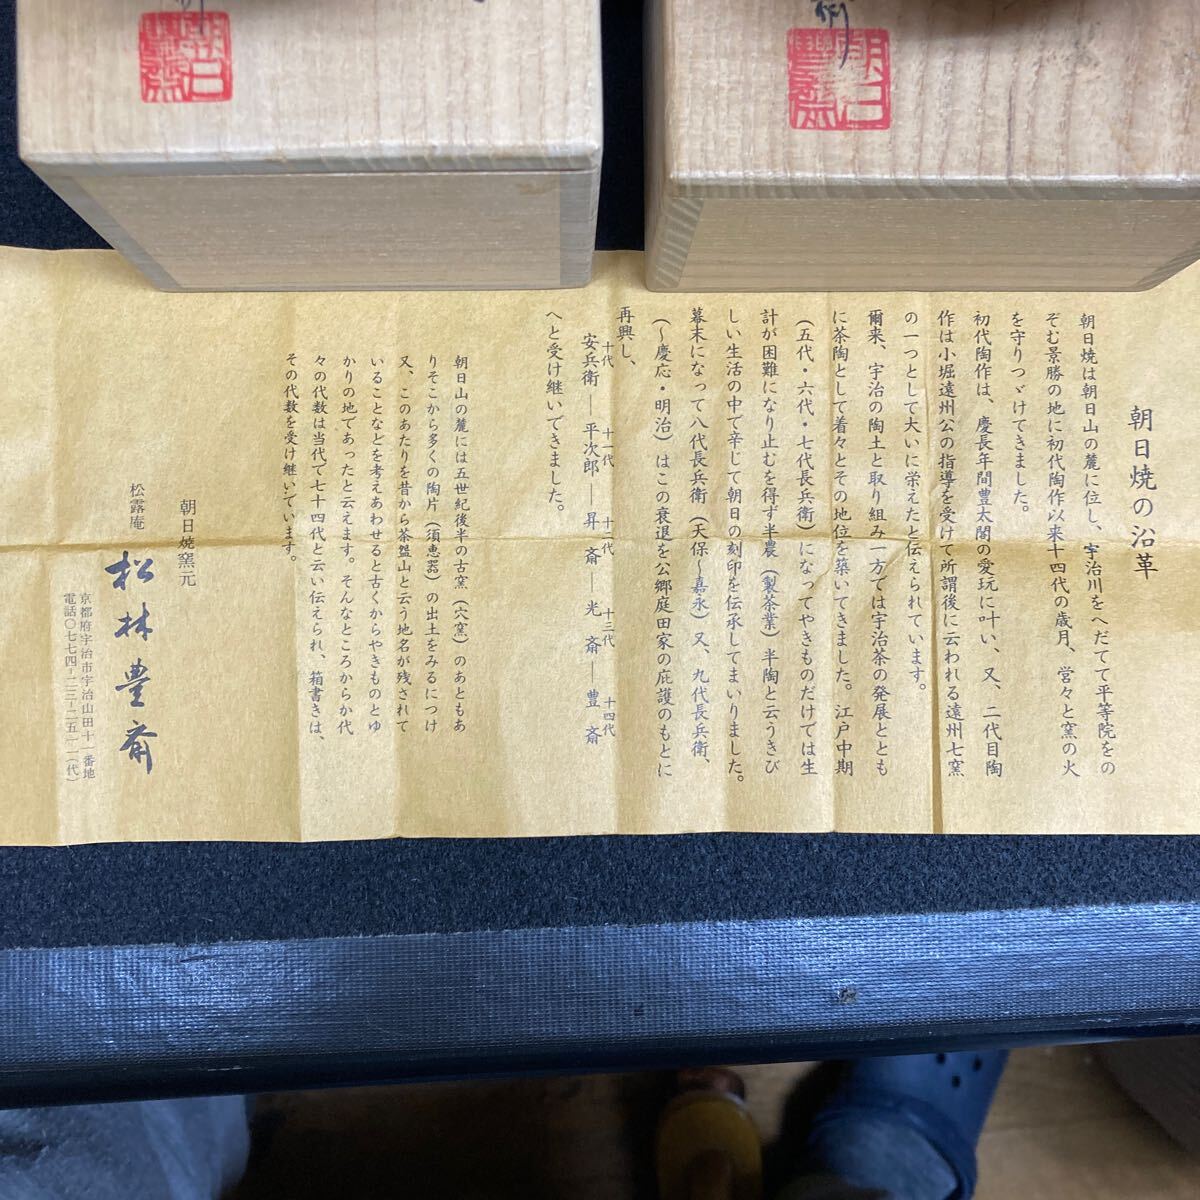 朝日焼の沿革
朝日焼は朝日山の麓に位し、宇治川をへだてて平等院をの
ぞむ景勝の地に初代陶作以来十四代の歳月、営々と窯の火
を守りつゞけてきました。
初代陶作は、慶長年間豊太閤の愛玩に叶い、又、二代目陶
作は小堀遠州公の指導を受けて所謂後に云われる遠州七窯
の一つとして大いに栄えたと伝えられています。
爾来、宇治の陶土と取り組み一方では宇治茶の発展ととも
に茶陶として着々とその地位を築いてきました。江戸中期
（五代・六代・七代長兵衛）になってやきものだけでは生
計が困難になり止むを得ず半農（製茶業）半陶と云うきび
しい生活の中で辛じて朝日の刻印を伝承してまいりました。
幕末になって八代長兵衛（天保～嘉永）又、九代長兵衛、
（～慶応・明治）はこの衰退を公郷庭田家の庇護のもとに
再興し、
十代 十一代 十二代 十三代 十四代
安兵衛―平次郎―昇斎―光斎―豊斎
へと受け継いできました。
朝日山の麓には五世紀後半の古窯（穴窯）のあともあ
りそこから多くの陶片（須恵器）の出土をみるにつけ
又、このあたりを昔から茶盌山と云う地名が残されて
いることなどを考えあわせると古くからやきものとゆ
かりの地であったと云えます。そんなところからか代
々の代数は当代で七十四代と云い伝えられ、箱書きは、
その代数を受け継いています。
朝日焼窯元
松露庵 松林豊斎
京都府宇治市宇治山田十一番地
電話〇七七四-二三-二五一一（代）
朝日
朝日